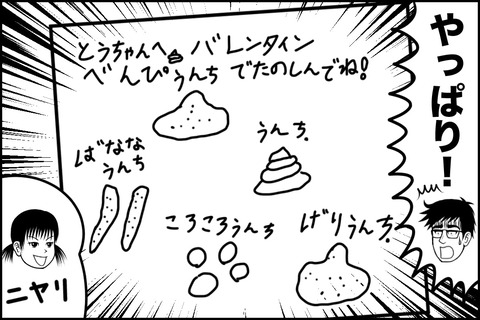 やっぱり!
とうちゃんへ バレンタイン
べんぴうんち でたのしんでね!
うんち
ばなな
うんち
ころころうんち
げりうんち
ニヤリ